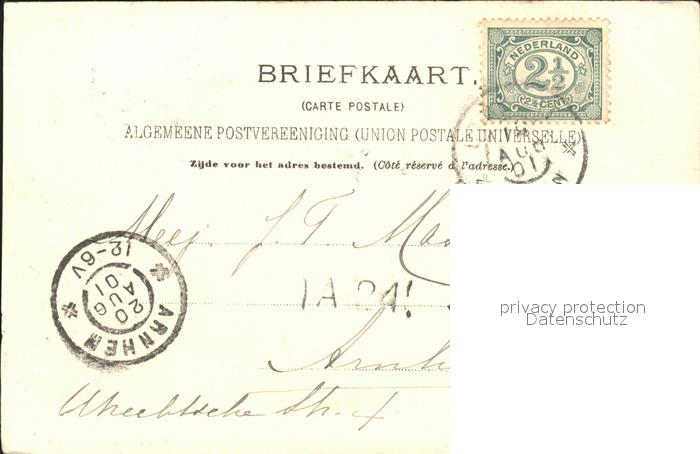 BRIEFKAART.
(CARTE POSTALE)
ALGEMEENE POSTVEREENIGING (UNION POSTALE UNIVERSELLE)
Zijde voor het adres bestemd. (Côté réservé à l'adresse.)
NEDERLAND
2½
(2½ CENT)
AUG
01
Mej. J. T.
1A 24!
ARNHEM
20 AUG 01
12-6V
Utrechtsche Str.
privacy protection
Datenschutz